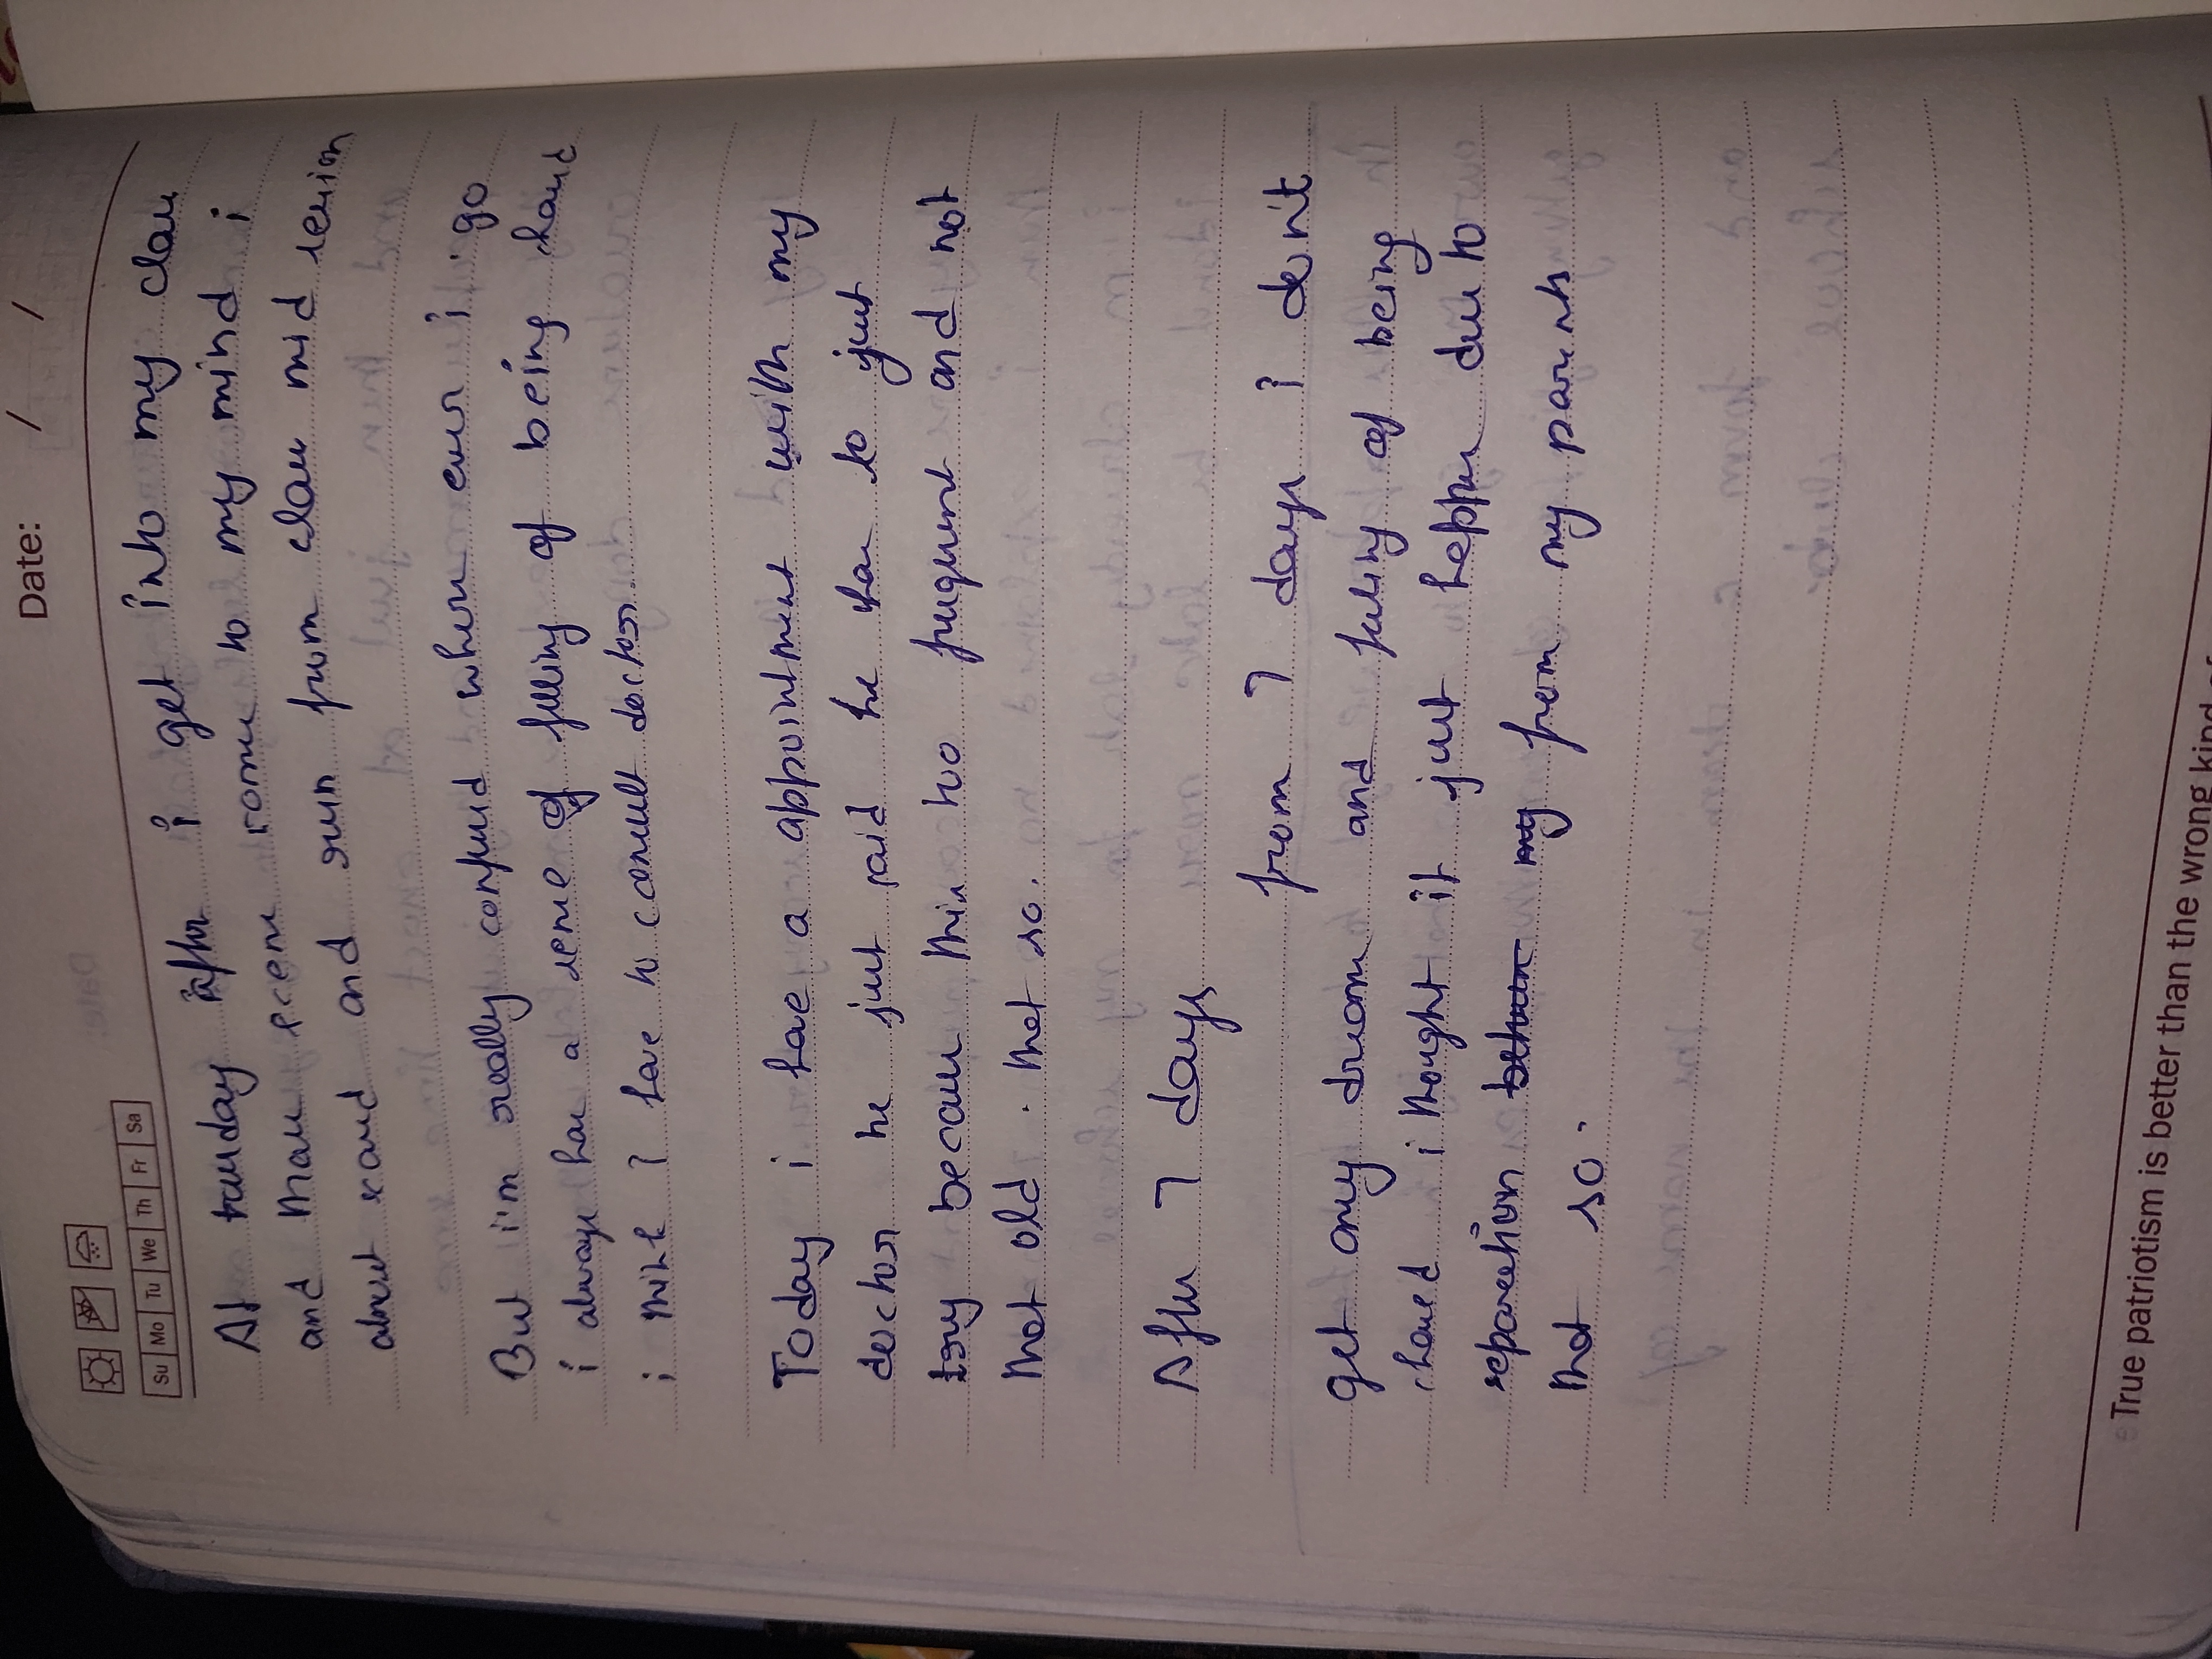 Date: / /
Su Mo Tu We Th Fr Sa
At tuesday after i get into my class
and those scene comes to my mind i
almost scared and run from class mid session
But i'm really confused where ever i go
i always has a sense of felling of being chased
i think I have to consult doctor.
Today i have a appointment with my
doctor he just said he has to just
try because this too frequent and not
that old . that so.
After 7 days
from 7 days i don't
get any dream and feeling of being
chased i thought it just happen due to
separation between my from my parents
that so.
True patriotism is better than the wrong kind of